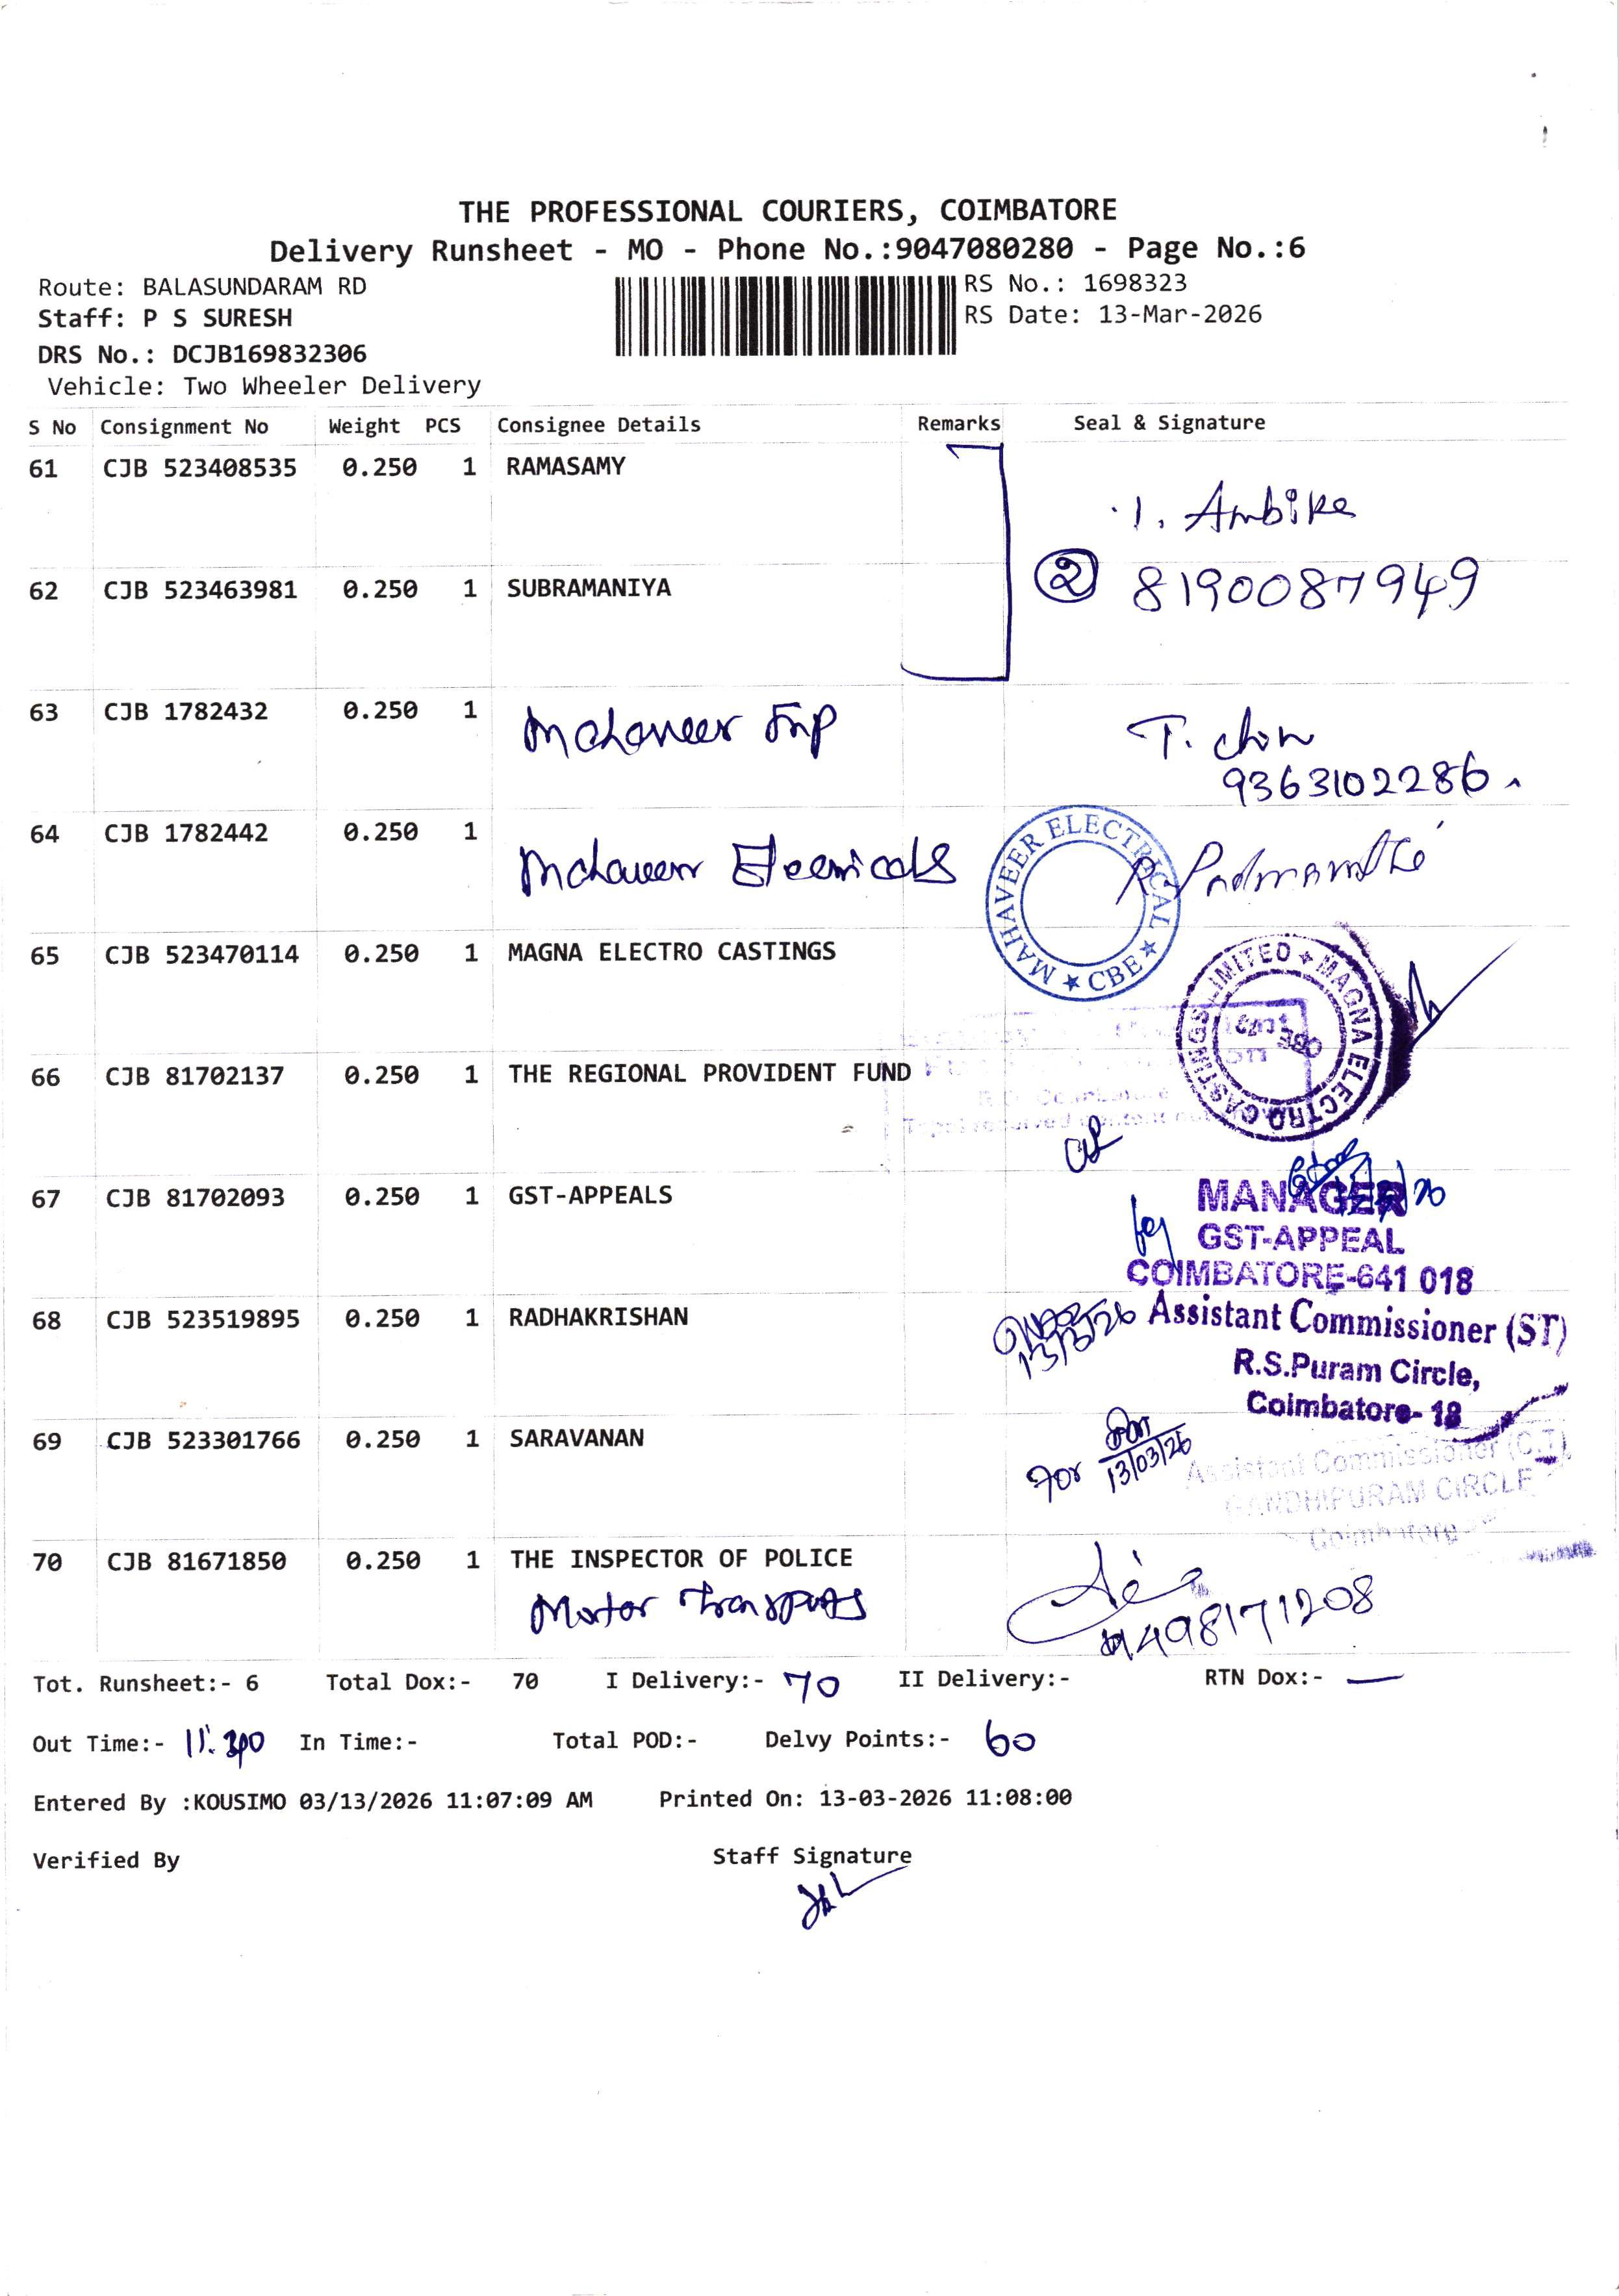 THE PROFESSIONAL COURIERS, COIMBATORE
Delivery Runsheet - MO - Phone No.:9047080280 - Page No.:6
Route: BALASUNDARAM RD
RS No.: 1698323
Staff: P S SURESH
RS Date: 13-Mar-2026
DRS No.: DCJB169832306
Vehicle: Two Wheeler Delivery
S No Consignment No Weight PCS Consignee Details Remarks Seal & Signature
61 CJB 523408535 0.250 1 RAMASAMY
1. Ambika
62 CJB 523463981 0.250 1 SUBRAMANIYA
2 8190087949
63 CJB 1782432 0.250 1 Mahaveer
T.
9363102286
64 CJB 1782442 0.250 1 Mahaveer Electricals
MAHAVEER ELECTRICAL ★ CBE ★
65 CJB 523470114 0.250 1 MAGNA ELECTRO CASTINGS
MAGNA ELECTRO CASTINGS LIMITED
66 CJB 81702137 0.250 1 THE REGIONAL PROVIDENT FUND
67 CJB 81702093 0.250 1 GST-APPEALS
MANAGER
GST-APPEAL
COIMBATORE-641 018
68 CJB 523519895 0.250 1 RADHAKRISHAN
13/3/26
Assistant Commissioner (ST)
R.S.Puram Circle,
Coimbatore- 18
69 CJB 523301766 0.250 1 SARAVANAN
for 13/03/26
Assistant Commissioner (C.T)
GANDHIPURAM CIRCLE
Coimbatore
70 CJB 81671850 0.250 1 THE INSPECTOR OF POLICE
Motor Transports
9498171208
Tot. Runsheet:- 6 Total Dox:- 70 I Delivery:- 70 II Delivery:- RTN Dox:- —
Out Time:- 11:30 In Time:- Total POD:- Delvy Points:- 60
Entered By :KOUSIMO 03/13/2026 11:07:09 AM Printed On: 13-03-2026 11:08:00
Verified By Staff Signature